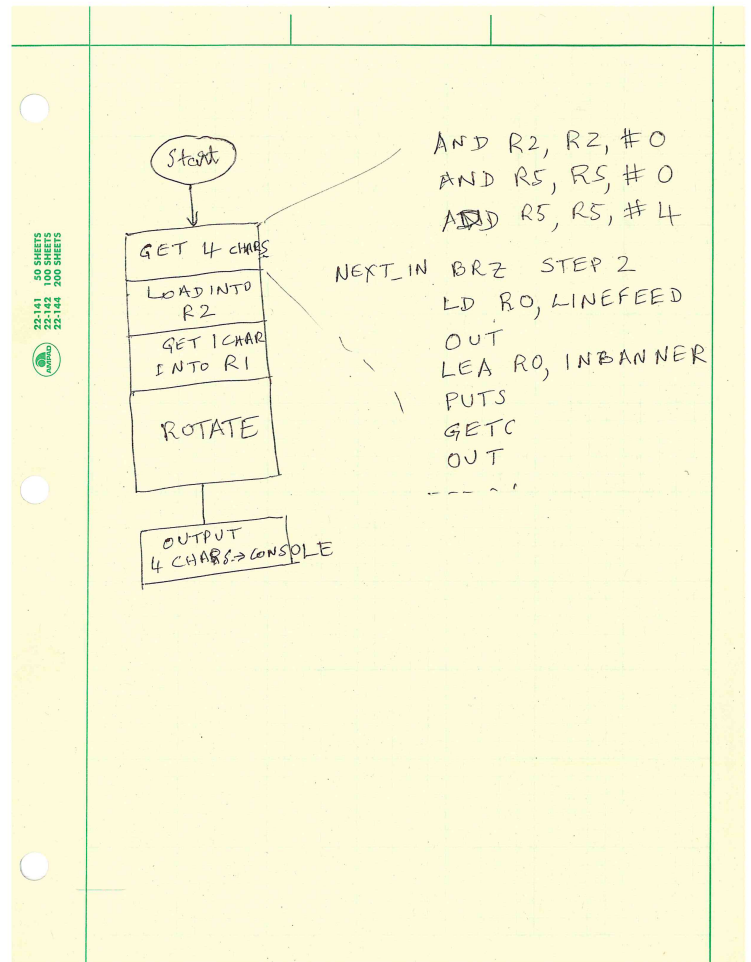 22-141 50 SHEETS
22-142 100 SHEETS
22-144 200 SHEETS
AMPAD
Start
GET 4 CHARS
LOAD INTO
R2
GET 1 CHAR
INTO R1
ROTATE
OUTPUT
4 CHARS → CONSOLE
AND R2, R2, #0
AND R5, R5, #0
ADD R5, R5, #4
NEXT_IN BRZ STEP 2
LD R0, LINEFEED
OUT
LEA R0, INBANNER
PUTS
GETC
OUT